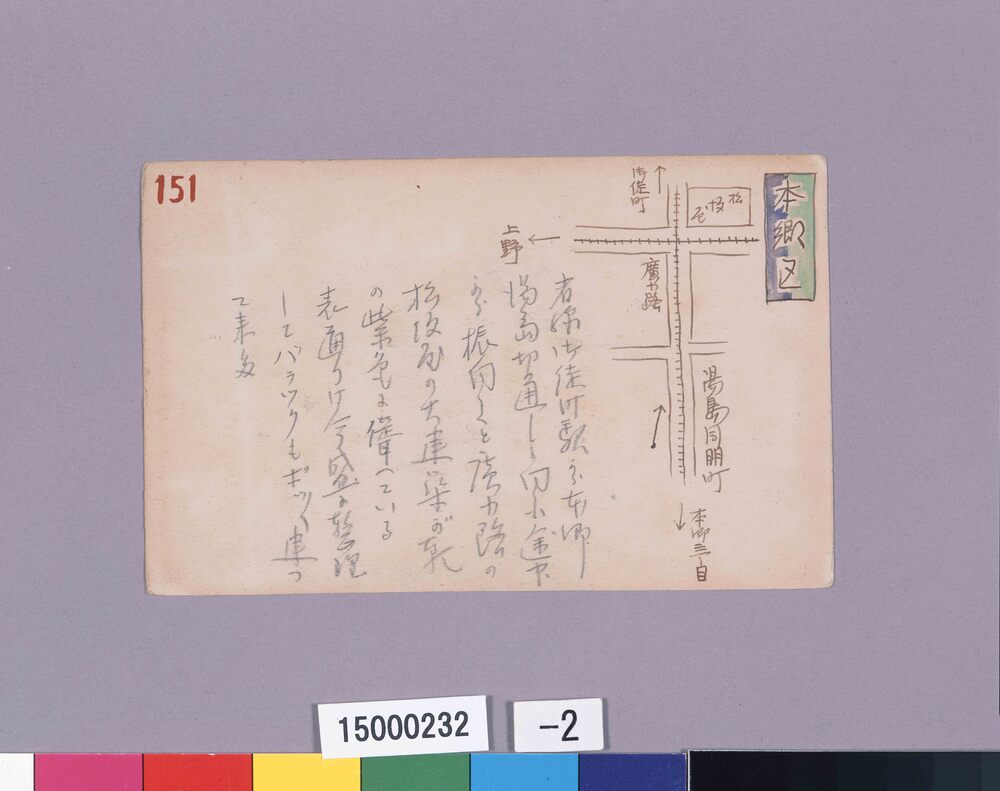 151
本郷区
松坂屋
御徒町
上野
廣小路
湯島同朋町
本郷三丁目
省線御徒町駅から本郷
湯島切通しへ向ふ途中
振向くと廣小路の
松坂屋の大建築が
の紫色に聳へている
表通りは今盛に整理
してバラックもポツポツ建つ
て来た
15000232
-2